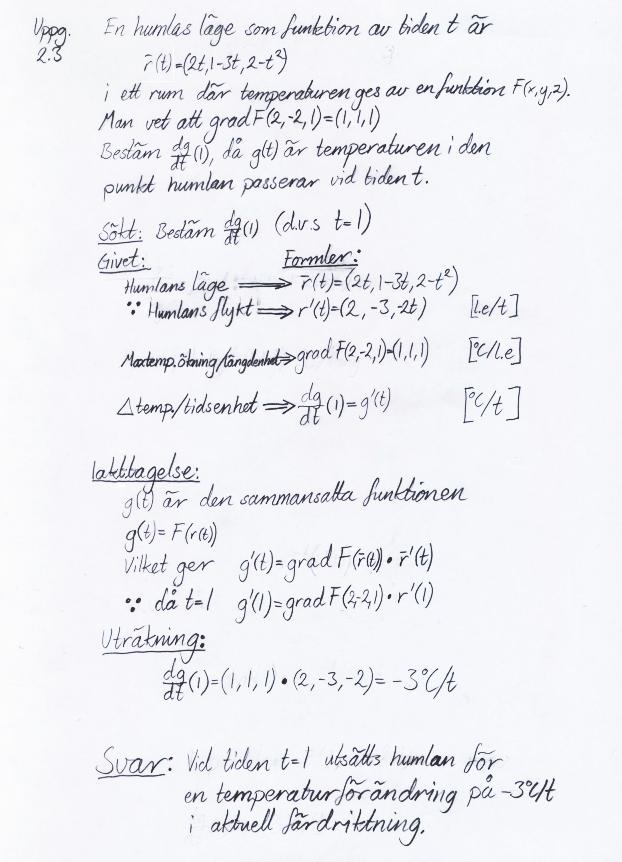 Uppg. 2.3
En humlas läge som funktion av tiden t är
r̄(t)=(2t,1-3t,2-t²)
i ett rum där temperaturen ges av en funktion F(x,y,z).
Man vet att grad F(2,-2,1)=(1,1,1)
Bestäm dg/dt(1), då g(t) är temperaturen i den
punkt humlan passerar vid tiden t.
Sökt: Bestäm dg/dt(1) (d.v.s t=1)
Givet: Formler:
Humlans läge ⟹ r̄(t)=(2t,1-3t,2-t²)
∵ Humlans flykt ⟹ r'(t)=(2,-3,-2t) [l.e/t]
Maxtemp.ökning/längdenhet ⟹ grad F(2,-2,1)=(1,1,1) [°C/l.e]
△temp./tidsenhet ⟹ dg/dt(1)=g'(t) [°C/t]
Iakttagelse:
g(t) är den sammansatta funktionen
g(t)=F(r(t))
Vilket ger g'(t)=grad F(r̄(t))•r̄'(t)
∵ då t=1 g'(1)=grad F(2,-2,1)•r'(1)
Uträkning:
dg/dt(1)=(1,1,1)•(2,-3,-2)=-3°C/t
Svar: Vid tiden t=1 utsätts humlan för
en temperaturförändring på -3°C/t
i aktuell färdriktning.